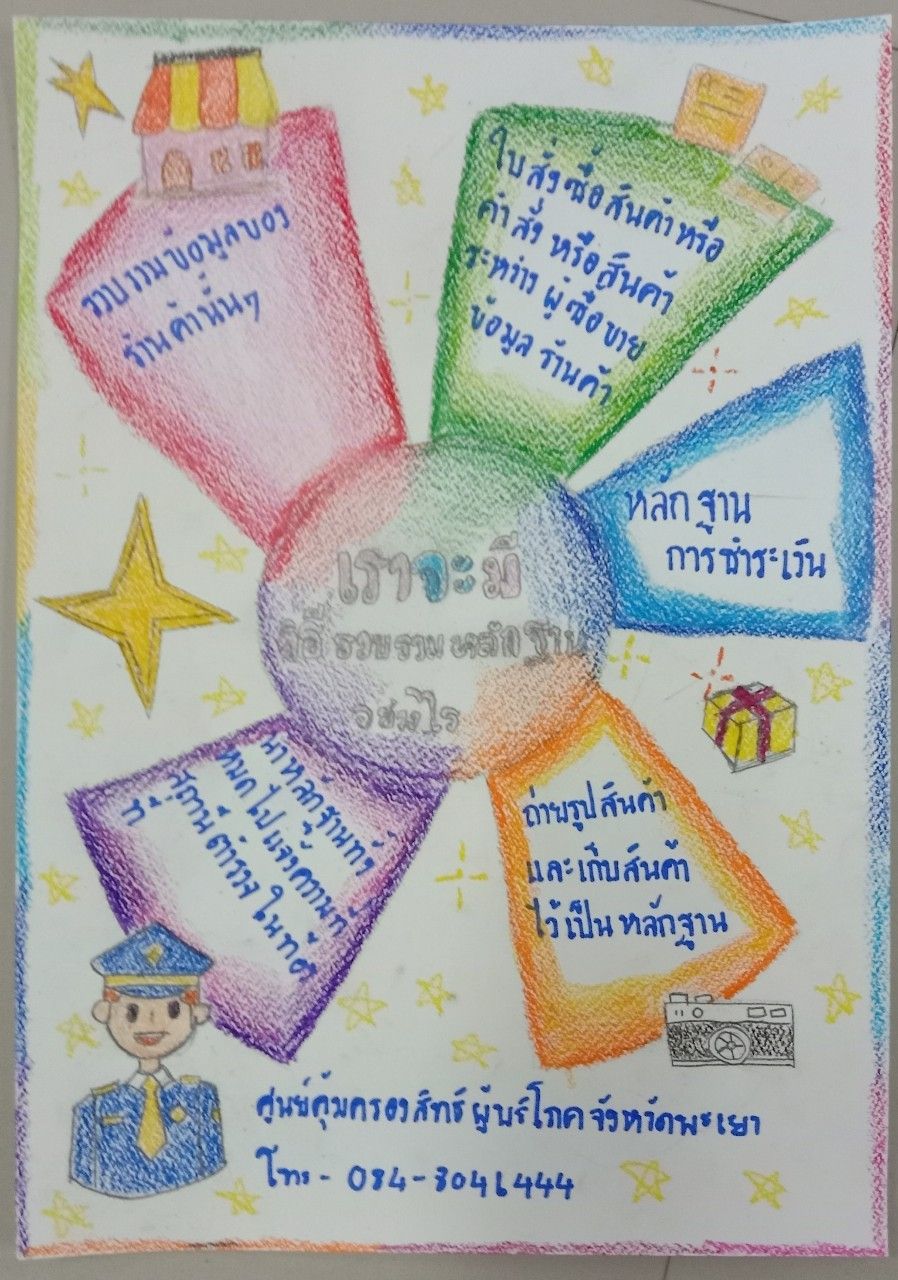 เราจะมี
วิธีรวบรวมหลักฐาน
อย่างไร
รวบรวมข้อมูลของ
ร้านค้านั้นๆ
ใบสั่งซื้อสินค้าหรือ
คำสั่ง หรือสินค้า
ระหว่าง ผู้ซื้อขาย
ข้อมูล ร้านค้า
หลักฐาน
การชำระเงิน
ถ่ายรูปสินค้า
และเก็บสินค้า
ไว้เป็น หลักฐาน
นำหลักฐานทั้ง
หมดไปแจ้งความที่
สถานีตำรวจ ในท้อง
ที่
ศูนย์คุ้มครองสิทธิ์ผู้บริโภคจังหวัดพะเยา
โทร - 084-8041444